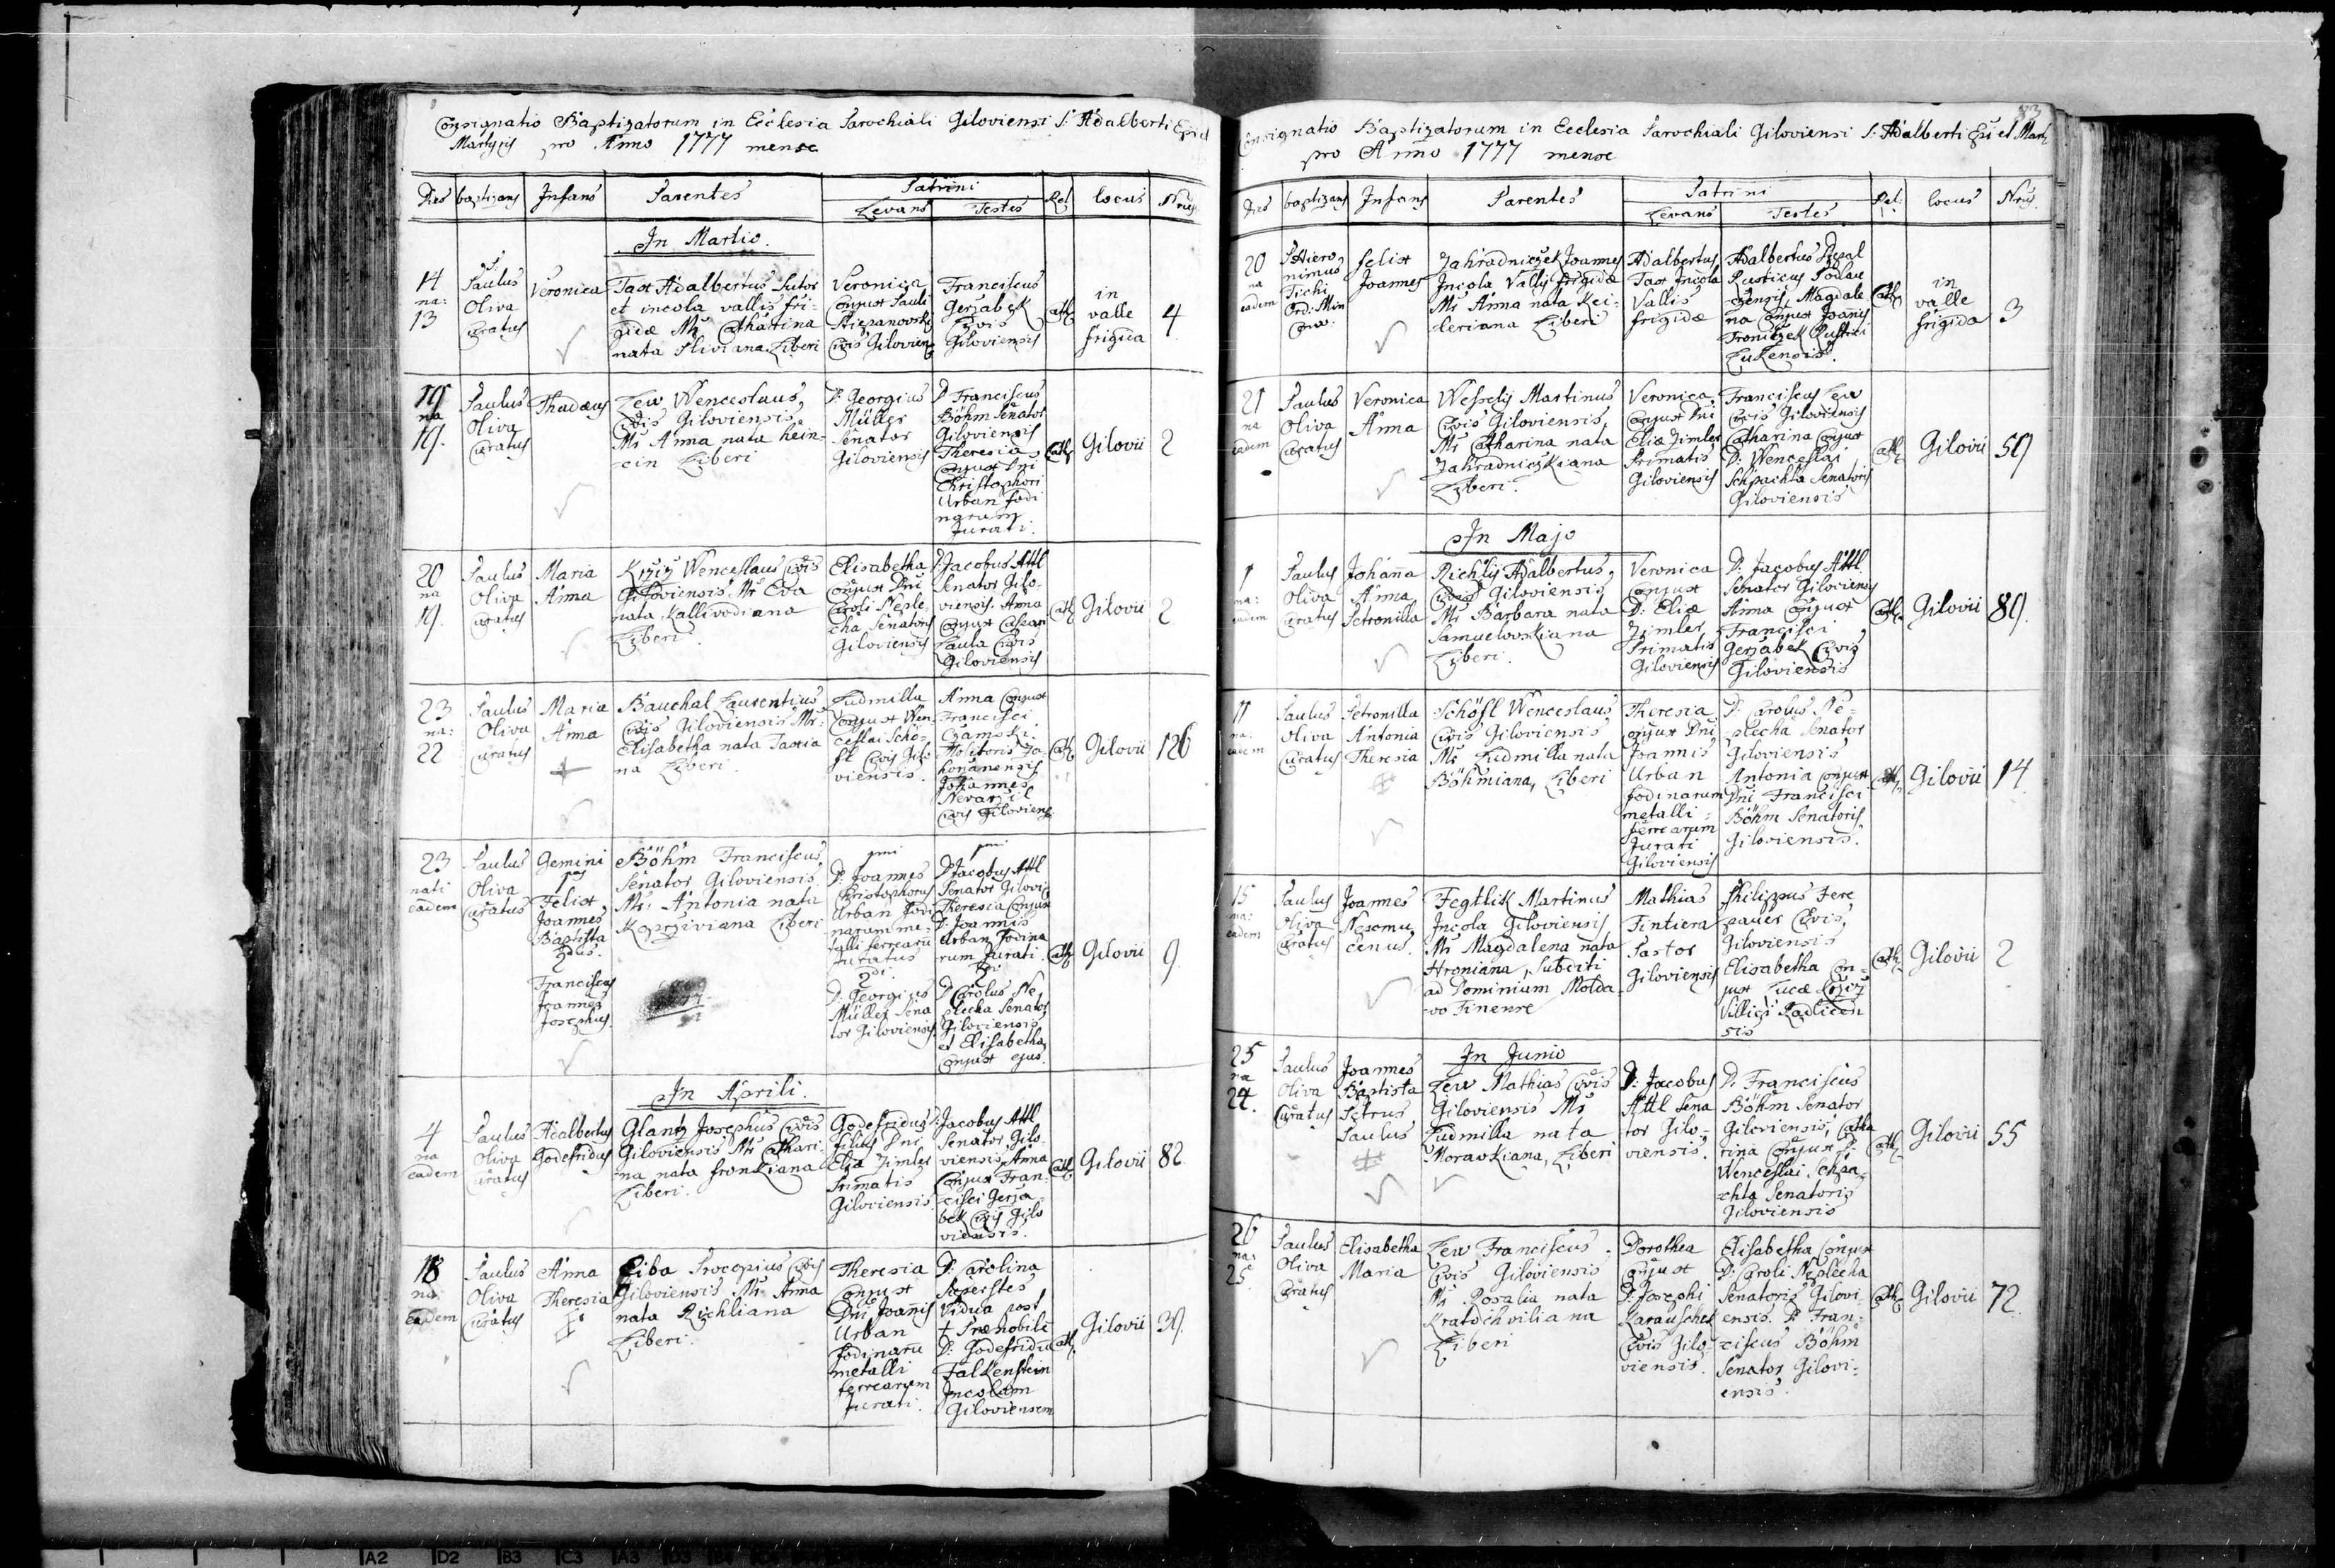 Consignatio Baptizatorum in Ecclesia Parochiali Giloviensi S: Adalberti
Martyris pro Anno 1777 mense
Dies baptizans Infans Parentes Patrini Rel locus Nrus
Levans Testes
In Martio.
14
na:
13
P.
Paulus
Oliva
Curatus
Veronica
Tax Adalbertus Sutor
et incola vallis fri-
gidæ Mr Catharina
nata Sliviana Liberi
Veronica
Conjux Pauli
Stiepanovsky
Civis Giloviens
Franciscus
Gerjabek
Civis
Giloviensis
Cath
in
valle
frigida
4
19
na
19.
Paulus
Oliva
Curatus
Thadæus
Lew Wenceslaus,
Civis Giloviensis,
Mr Anna nata hein-
cin Liberi
D: Georgius
Müller
Senator
Giloviensis
D Franciscus
Böhm Senator
Giloviensis
Theresia
Conjux Dni
Christophori
Urban fodi
narum
Jurati.
Cath
Gilovii
2
20
na
19.
Paulus
Oliva
Curatus
Maria
Anna
Krziz Wenceslaus Civis
Giloviensis Mr Eva
nata Kallivodiana
Liberi.
Elisabetha
Conjux Dni
Caroli Neple-
cha Senatoris
Giloviensis
D: Jacobus Attl
Senator Gilo-
viensis. Anna
Conjux Caspari
Paula Civis
Giloviensis
Cath
Gilovii
2
23
na:
22
Paulus
Oliva
Curatus
Maria
Anna
Bauchal Laurentius
Civis Giloviensis Mr:
Elisabetha nata Taxia
na Liberi.
Ludmilla
Conjux Wen-
ceslai Schö-
fl Civis Gilo
viensis.
Anna Conjux
Francisci
Molitoris
Johannes
Nevarzil
Civis Giloviens
Cath
Gilovii
126
23
nati
eadem
Paulus
Oliva
Curatus
Gemini
pus
Felix
Joannes
Baptista
2dus.
Franciscus
Joannes
Josephus.
Böhm Franciscus
Senator Giloviensis.
Mr: Antonia nata
Koprziviana Liberi
pmi
D: Joannes
Christophorus
Urban fodi
narum me-
talli ferrearu
Juratus
2di.
D: Georgius
Müller Sena
tor Giloviensis.
pmi
D Jacobus Attl
Senator Gilovi
Theresia Conjux
D: Joannis
Urban Fodina
rum Jurati.
2di
D Carolus Ne
plecha Senator
Giloviensis
et Elisabetha
Conjux ejus.
Cath
Gilovii
9
In Aprili.
4
na
eadem
Paulus
Oliva
Curatus
Adalbertus
Godefridus
Glantz Josephus Civis
Giloviensis Mr Cathari-
na nata fronkiana
Liberi.
Godefridus
filius Dni
Eliæ Zimler
Primatis
Giloviensis.
D: Jacobus Attl
Senator Gilo
viensis, Anna
Conjux Fran-
cisci Gerja-
bek Civis Gilo
viensis.
Cath
Gilovii
82
18
na:
eadem
Paulus
Oliva
Curatus
Anna
Theresia
Liba Procopius Civis
Giloviensis Mr Anna
nata Richliana
Liberi.
Theresia
Conjux
Dni Joanis
Urban
fodinaru
metalli
ferrearum
Jurati.
D: Carolina
Superstes
Vidua post
+ Prænobile
D: Godefridu
Falkenstein
Incolam
Giloviensem
Cath
Gilovii
39.
Consignatio Baptizatorum in Ecclesia Parochiali Giloviensi S: Adalberti Epi et Mart
pro Anno 1777 mense
Dies baptizans Infans Parentes Patrini Rel: locus Nrus.
Levans Testes
20
na
eadem
P Hiero
nimus
Tichi
Ord: Min
Conv:
Felix
Joannes
Zahradniczek Joannes
Incola Vallis frigidæ
Mr Anna nata Kei-
leriana Liberi
Adalbertus
Tax Incola
Vallis
frigidæ
Adalbertus
Rusticus
Magdale
na Conjux Joanis
Fronietzek Rustici
Lukensis.
Cath
in
valle
frigida
3
21
na
eadem
Paulus
Oliva
Curatus
Veronica
Anna
Wesseli Martinus
Civis Giloviensis,
Mr Catharina nata
Zahradniczkiana
Liberi.
Veronica
Conjux Dni
Eliæ Zimler
Primatis
Giloviensis
Franciscus Lew
Civis Giloviensis
Catharina Conjux
D: Wenceslai
Schpachta Senatoris
Giloviensis
Cath
Gilovii
59
In Majo
1
na:
eadem
Paulus
Oliva
Curatus
Johanna
Anna
Petronilla
Richlý Adalbertus,
Civis Giloviensis
Mr Barbara nata
Samuelovskiana
Liberi.
Veronica
Conjux
D: Eliæ
Zimler
Primatis
Giloviensis
D: Jacobus Attl
Senator Giloviensis
Anna Conjux
Francisci
Gerjabek Civis
Giloviensis
Cath
Gilovii
89.
11
na:
eadem
Paulus
Oliva
Curatus
Petronilla
Antonia
Theresia
Schöfl Wenceslaus
Civis Giloviensis
Mr Ludmilla nata
Böhmiana, Liberi
Theresia
Conjux Dni
Joannis
Urban
fodinarum
metalli
ferrearum
Jurati
Giloviensis
D: Carolus Ne-
plecha Senator
Giloviensis
Antonia Conjux
Dni Francisci
Böhm Senatoris
Giloviensis.
Cath
Gilovii
14
15
na:
eadem
Paulus
Oliva
Curatus
Joannes
Nepomu
cenus
Fegtlik Martinus
Incola Giloviensis
Mr Magdalena nata
Hroniana, Subditi
ad Dominium Molda-
vo Tinense
Mathias
Fintiera
Pastor
Giloviensis
Philippus Fere
pauer Civis
Giloviensis
Elisabetha Con-
jux Lucæ Krziz
Villici Radlicen
sis
Cath
Gilovii
2
In Junio
25
na
24.
Paulus
Oliva
Curatus
Joannes
Baptista
Petrus
Paulus
Lew Mathias Civis
Giloviensis Mr
Ludmilla nata
Morawkiana, Liberi
D: Jacobus
Attl Sena
tor Gilo-
viensis.
D. Franciscus
Böhm Senator
Giloviensis, Catha
rina Conjux D:
Wenceslai Schpa-
chta Senatoris
Giloviensis
Cath
Gilovii
55
26
na:
25
Paulus
Oliva
Curatus
Elisabetha
Maria
Lew Franciscus
Civis Giloviensis
Mr Rosalia nata
Kratochviliana
Liberi
Dorothea
Conjux
D: Josephi
Karauschek
Civis Gilo-
viensis.
Elisabetha Conjux
D: Caroli Neplecha
Senatoris Gilovi-
ensis. D: Fran-
ciscus Böhm
Senator Gilovi-
ensis.
Cath
Gilovii
72.
A2 D2 B3 C3 A3 D3